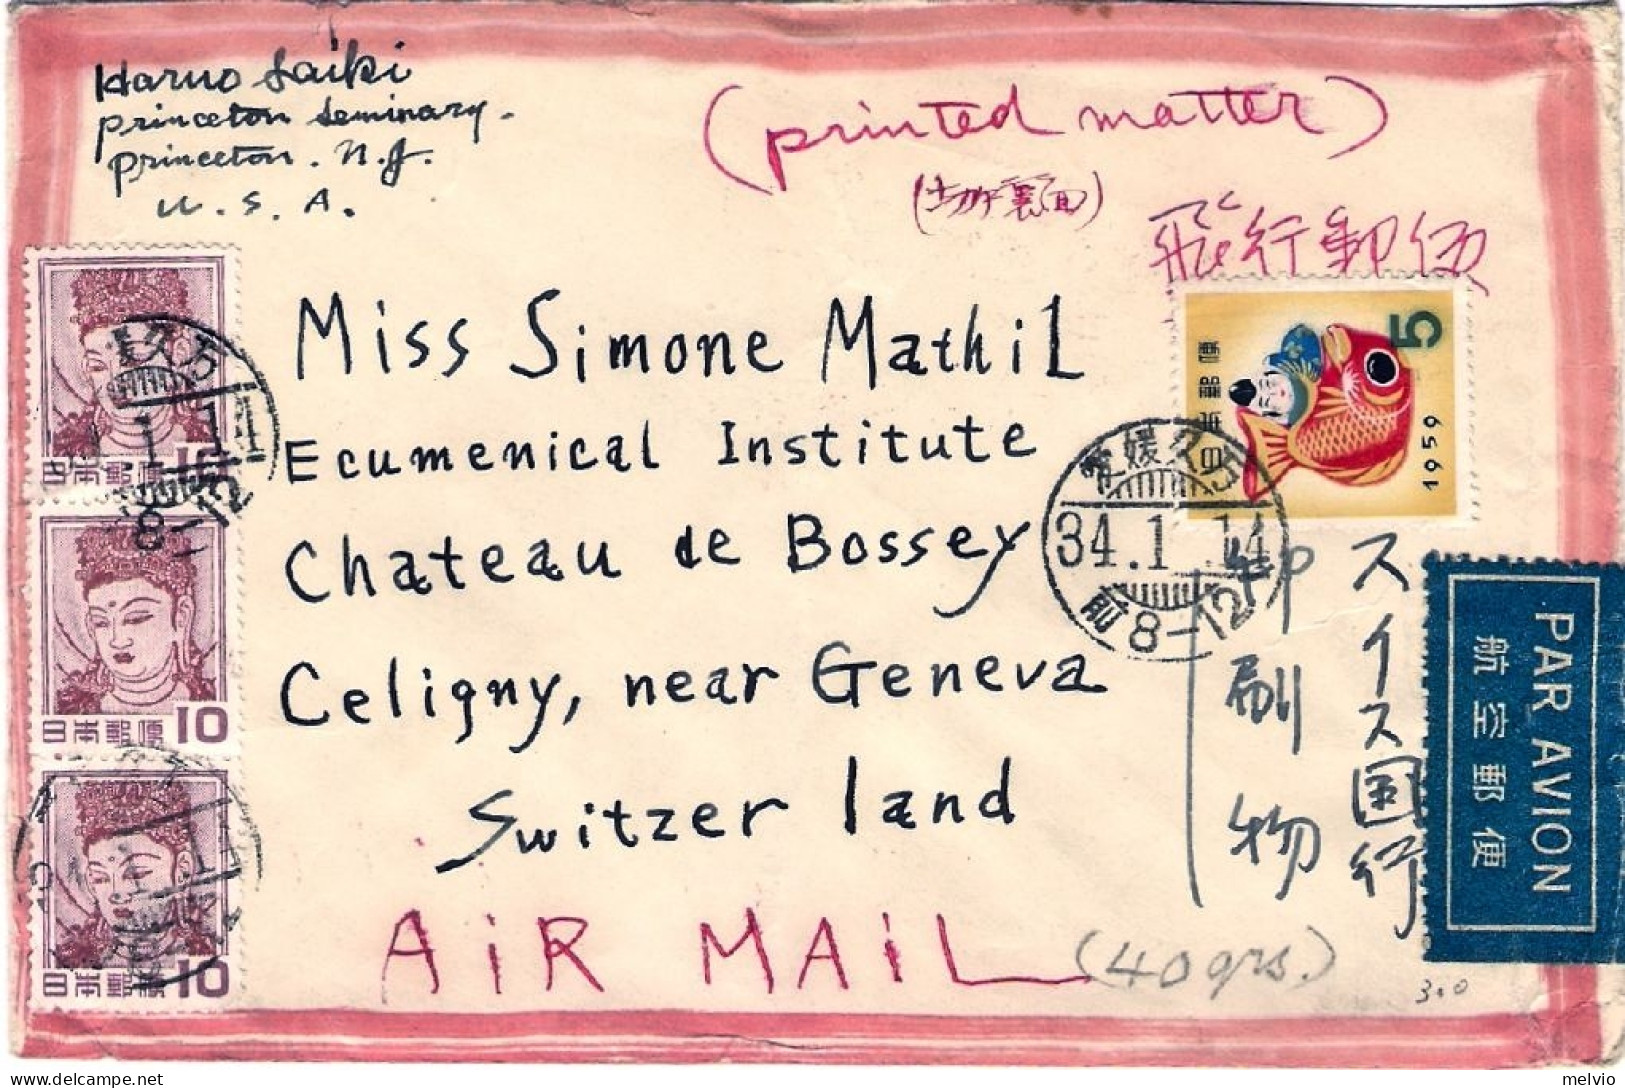 Haruo Saiki
Princeton Seminary.
Princeton. N.J.
U. S. A.
(printed matter)
裏面)
飛行郵便
Miss Simone Mathil
Ecumenical Institute
Chateau de Bossey
Celigny, near Geneva
Switzer land
AiR MAiL
(40grs.)
スイス国行
印刷物
3.0
5
1959
日本郵便
愛媛久万
34.1.14
前8-12
日本郵便 10
日本郵便 10
日本郵便 10
PAR AVION
航空郵便
delcampe.net
melvio